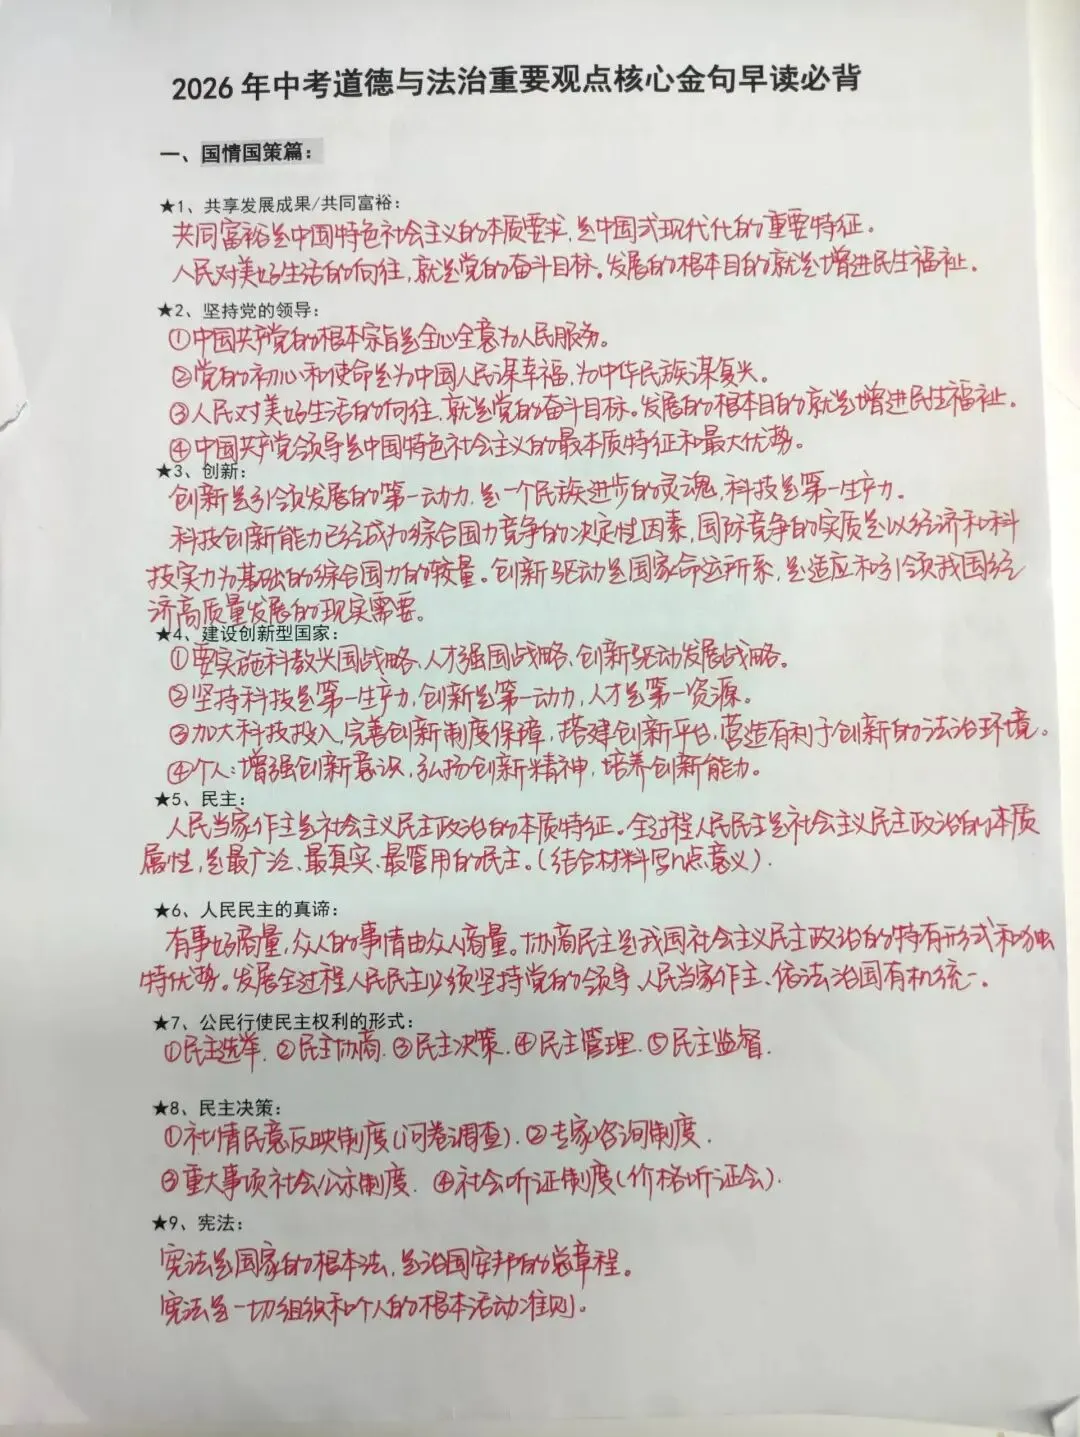 2026年中考道德与法治重要观点核心金句早读必背
一、国情国策篇：
★1、共享发展成果/共同富裕：
共同富裕是中国特色社会主义的本质要求，是中国式现代化的重要特征。
人民对美好生活的向往，就是党的奋斗目标。发展的根本目的就是增进民生福祉。
★2、坚持党的领导：
①中国共产党的根本宗旨是全心全意为人民服务。
②党的初心和使命是为中国人民谋幸福，为中华民族谋复兴。
③人民对美好生活的向往，就是党的奋斗目标。发展的根本目的就是增进民生福祉。
④中国共产党领导是中国特色社会主义的最本质特征和最大优势。
★3、创新：
创新是引领发展的第一动力，是一个民族进步的灵魂，科技是第一生产力。
科技创新能力已经成为综合国力竞争的决定性因素，国际竞争的实质是以经济和科
技实力为基础的综合国力的较量。创新驱动是国家命运所系，是适应和引领我国经
济高质量发展的现实需要。
★4、建设创新型国家：
①要实施科教兴国战略、人才强国战略、创新驱动发展战略。
②坚持科技是第一生产力，创新是第一动力，人才是第一资源。
③加大科技投入，完善创新制度保障，搭建创新平台，营造有利于创新的法治环境。
④个人：增强创新意识，弘扬创新精神，培养创新能力。
★5、民主：
人民当家作主是社会主义民主政治的本质特征。全过程人民民主是社会主义民主政治的本质
属性，是最广泛、最真实、最管用的民主。（结合材料写n点意义）.
★6、人民民主的真谛：
有事好商量，众人的事情由众人商量。协商民主是我国社会主义民主政治的特有形式和独
特优势。发展全过程人民民主必须坚持党的领导、人民当家作主、依法治国有机统一。
★7、公民行使民主权利的形式：
①民主选举. ②民主协商. ③民主决策. ④民主管理. ⑤民主监督.
★8、民主决策：
①社情民意反映制度（问卷调查）. ②专家咨询制度.
③重大事项社会公示制度. ④社会听证制度（价格听证会）.
★9、宪法：
宪法是国家的根本法，是治国安邦的总章程。
宪法是一切组织和个人的根本活动准则。